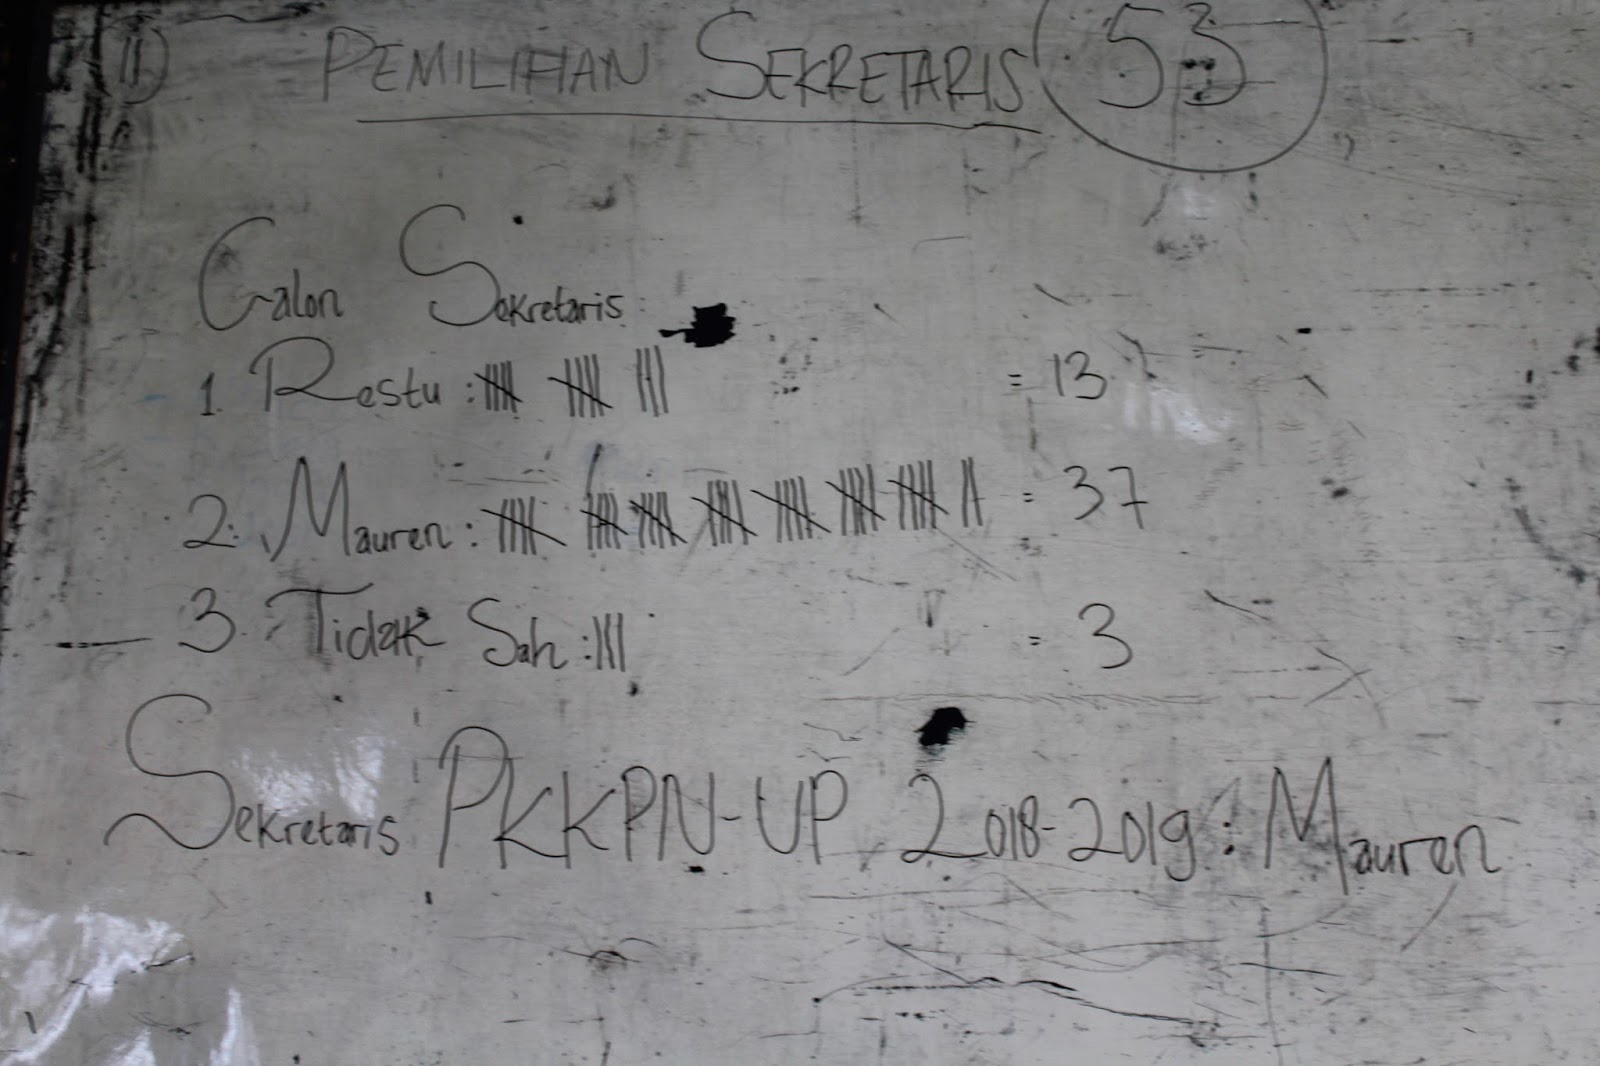 II) PEMILIHAN SEKRETARIS 53
Calon Sekretaris:
1. Restu : = 13
2. Mauren : = 37
3. Tidak Sah : = 3
Sekretaris PKKPN-UP 2018-2019 : Mauren